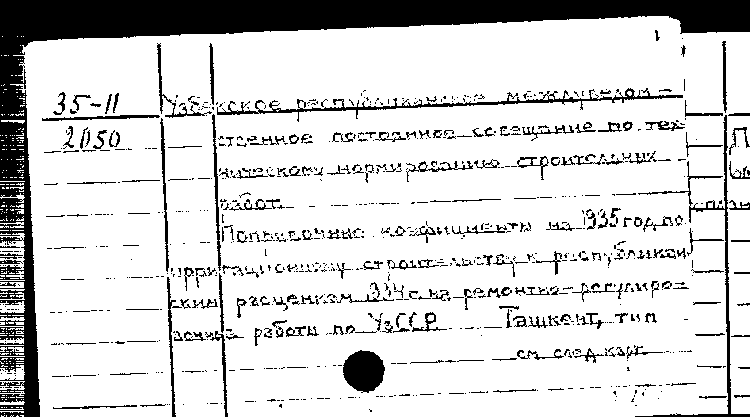 35-11
2050
Узбекское республиканское междуведом-
ственное постоянное совещание по тех-
ническому нормированию строительных
работ.
Поправочные коэфициенты на 1935 год по
ирригационному строительству к республикан-
ским расценкам 1934 г. на ремонтно-регулиро-
вочные работы по УзССР. Ташкент, тип
см. след. карт.